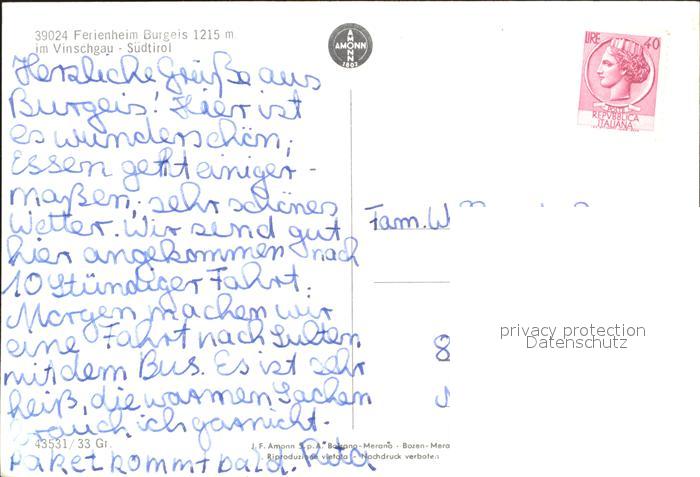 39024 Ferienheim Burgeis 1215 m
im Vinschgau - Südtirol
AMONN
AMONN
1802
LIRE 40
POSTE
REPVBBLICA
ITALIANA
Herzliche Grüße aus
Burgeis! Hier ist
es wunderschön,
Essen geht einiger-
maßen, sehr schönes
Wetter. Wir send gut
hier angekommen nach
10 stündiger Fahrt.
Morgen machen wir
eine Fahrt nach Sulten
mit dem Bus. Es ist sehr
heiß, die warmen Sachen
brauch ich garnicht.
Paket kommt bald. Rita
Fam. W
8
privacy protection
Datenschutz
43531/33 Gr.
J. F. Amonn S.p.A. Bolzano-Merano - Bozen-Mera
Riproduzione vietata - Nachdruck verboten